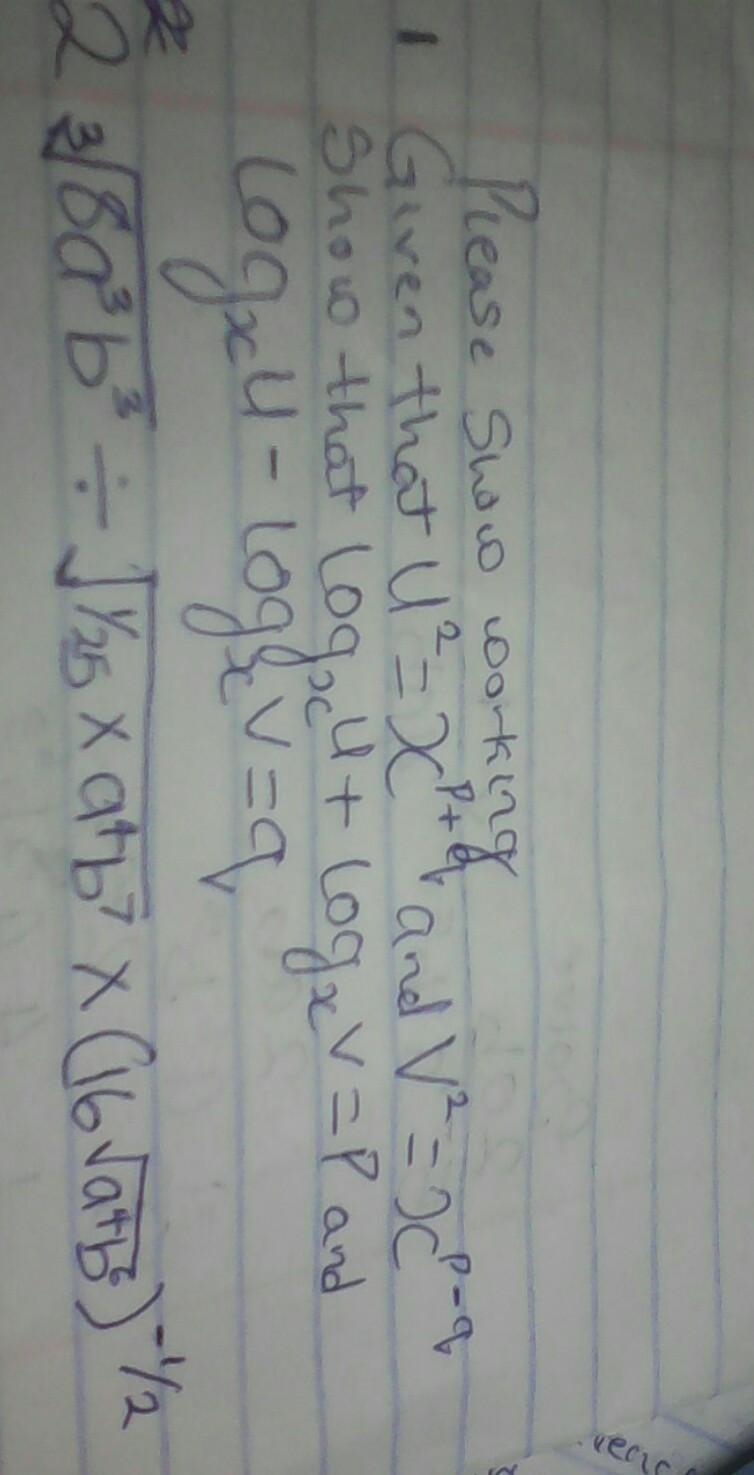 Please Show working
1 Given that U² = x^p+q and V² = x^p-q
Show that log_x U + log_x V = P and
log_x U - log_x V = q
2 ³√8a³b³ ÷ √1/25 × a⁴b⁷ × (16√a⁴b⁶)^-1/2